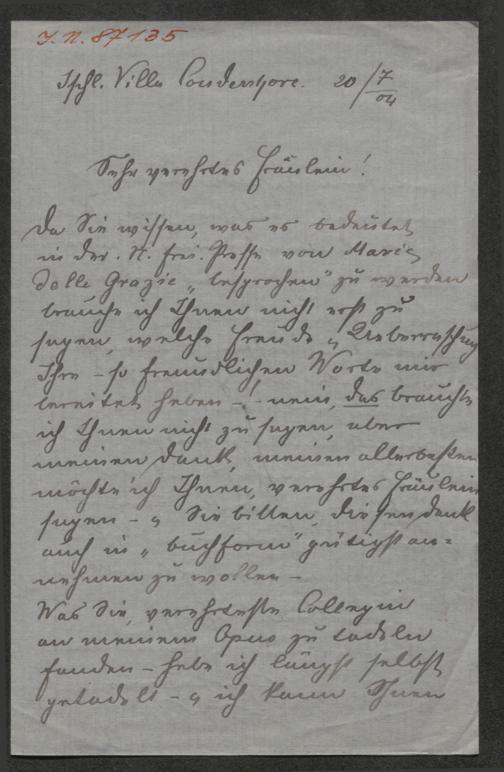 J. N. 87135
Ischl. Villa 20/7
04
Sehr verehrtes Fräulein!
Da Sie wissen, was es bedeutet
in der N. frei. Presse von Marie
delle Grazie „besprochen" zu werden
brauche ich Ihnen nicht erst zu
sagen, welche Freude & Ueberraschung
Ihre – so freundlichen Worte mir
bereitet haben –! – nein, das brauchte
ich Ihnen nicht zu sagen, aber
meinen Dank, meinen allerbesten
möchte ich Ihnen, verehrtes Fräulein
sagen – & Sie bitten, diesen Dank
auch in „buchform" gütigst an=
nehmen zu wollen –
Was Sie, verehrteste Collegin
an meinem Opus zu tadeln
fanden – habe ich längst selbst
getadelt – & ich kann Ihnen